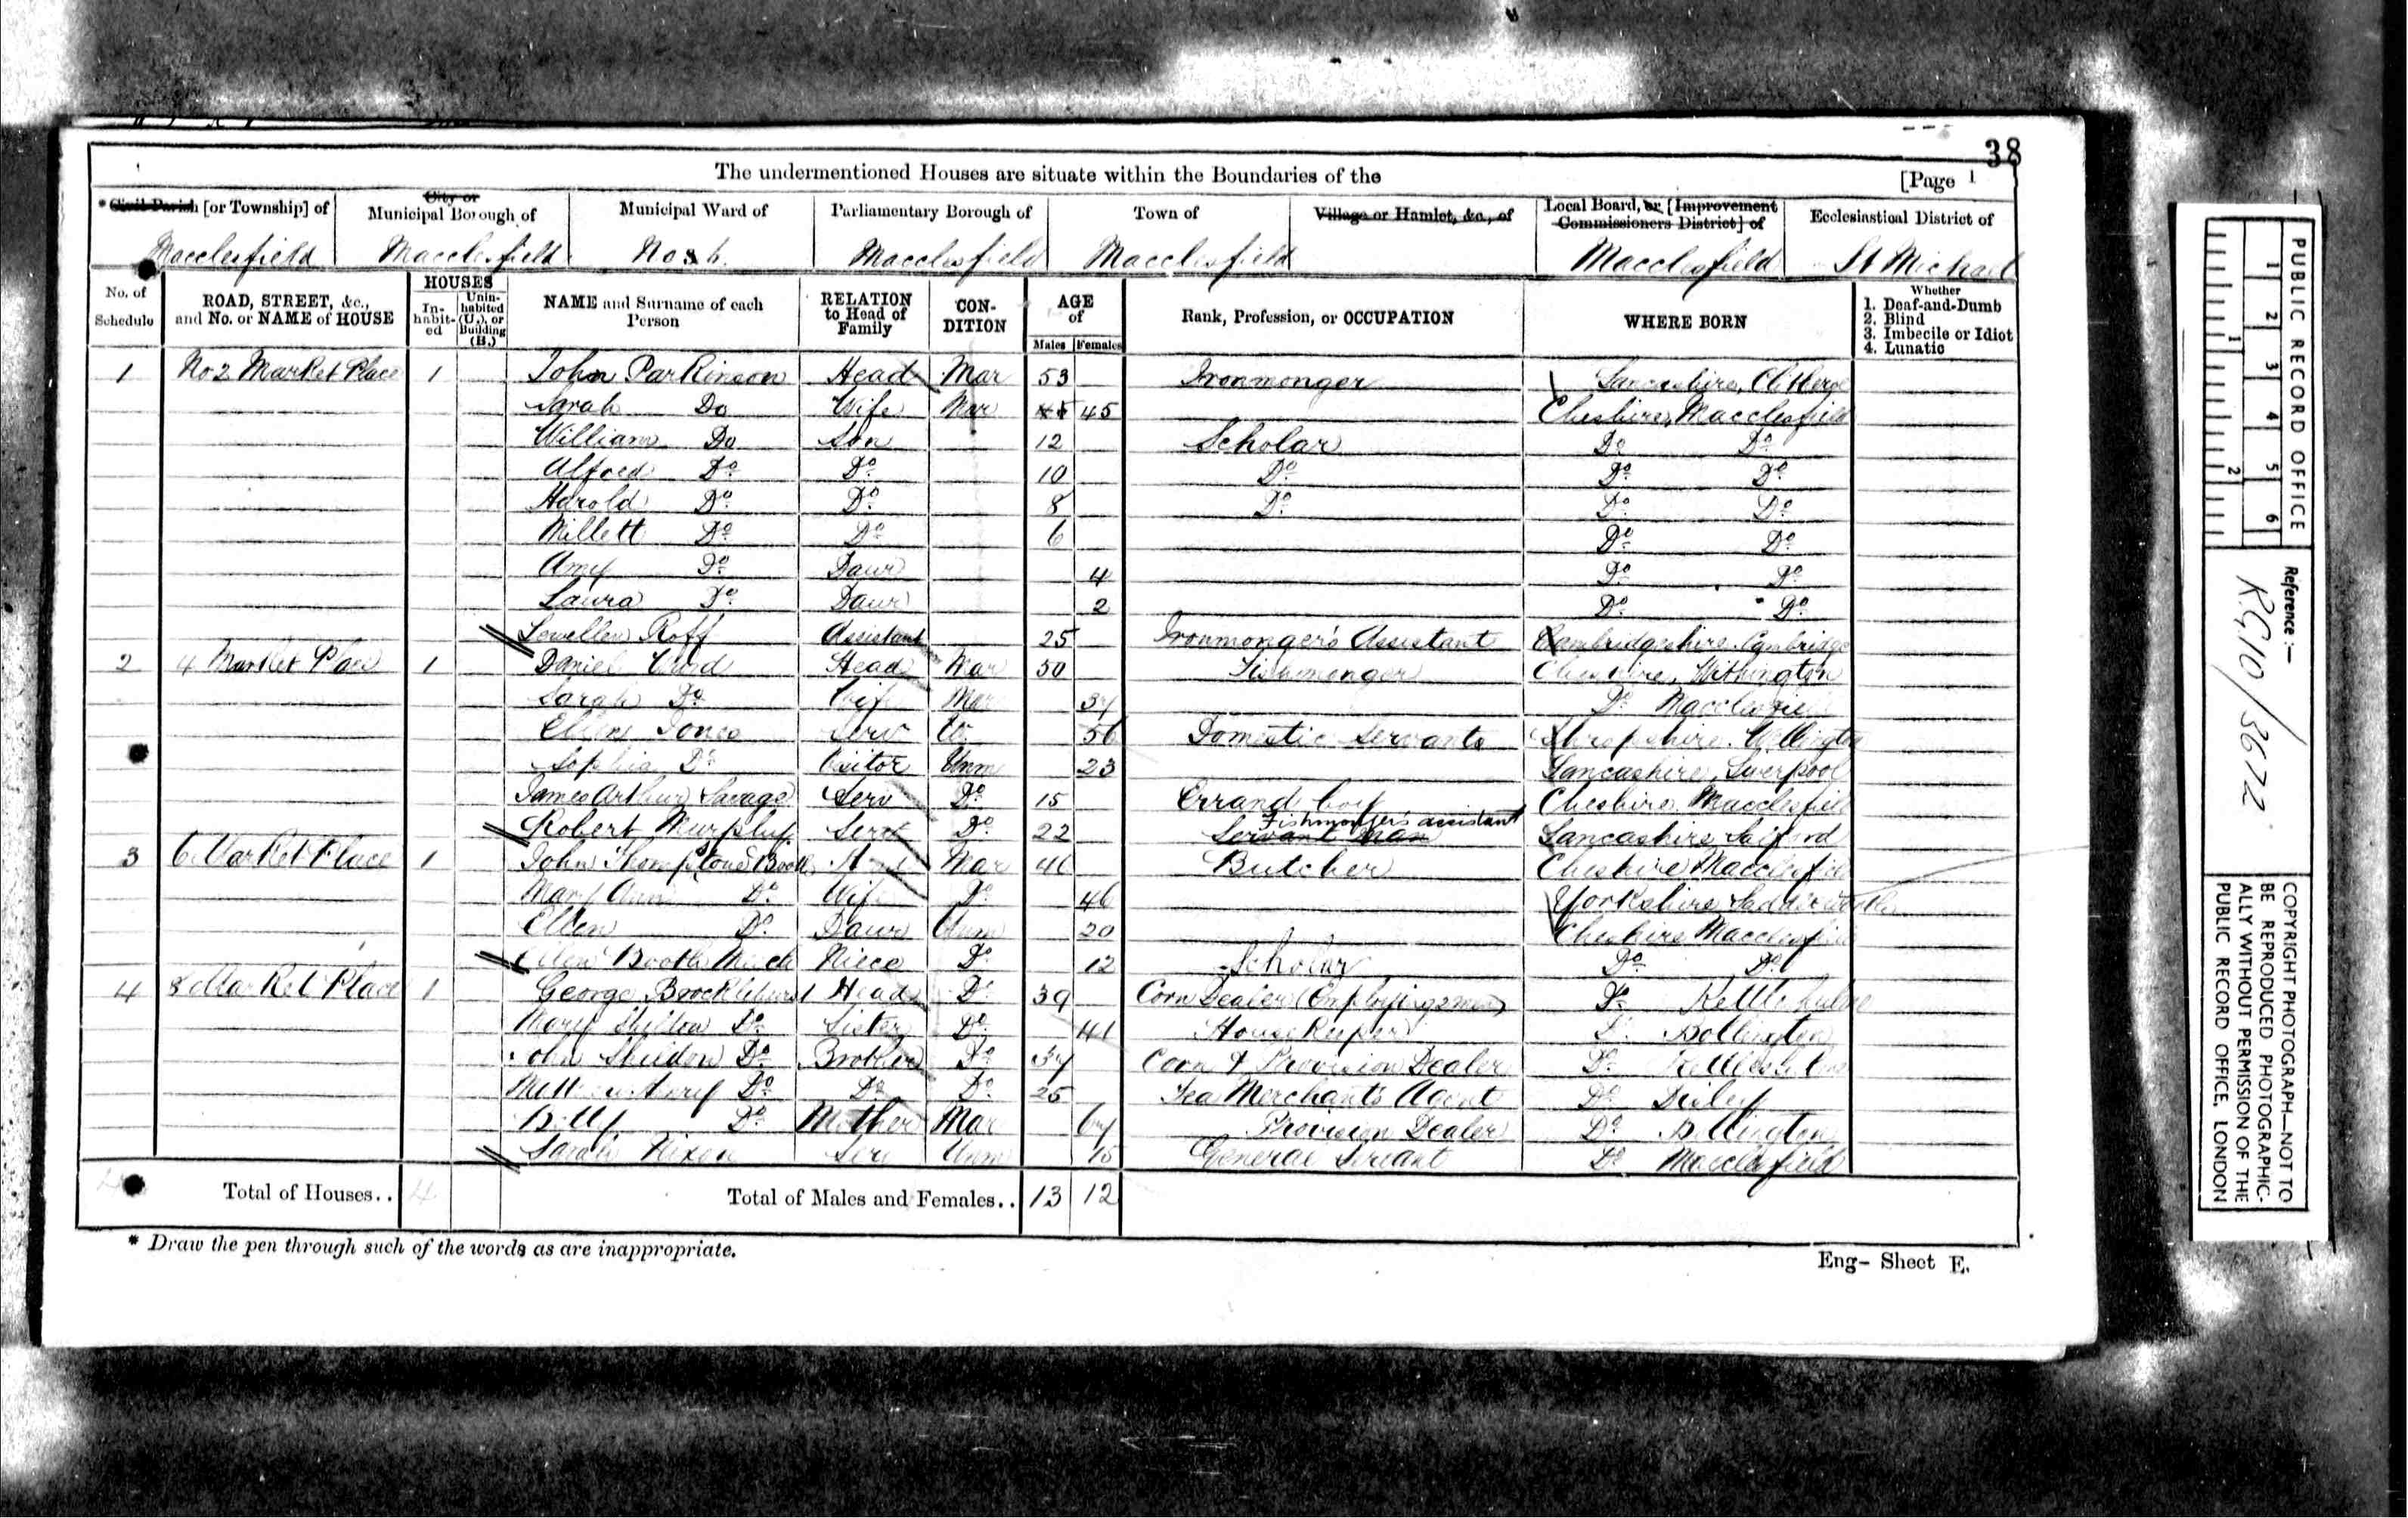 38
The undermentioned Houses are situate within the Boundaries of the
[Page 1
* Civil Parish [or Township] of
City or Municipal Borough of
Municipal Ward of
Parliamentary Borough of
Town of
Village or Hamlet, &c., of
Local Board, or [Improvement Commissioners District] of
Ecclesiastical District of
Macclesfield Macclesfield Macclesfield Macclesfield Macclesfield St Michael
No. of Schedule
ROAD, STREET, &c., and No. or NAME of HOUSE
HOUSES
In-habit-ed
Unin-habited (U.), or Building (B.)
NAME and Surname of each Person
RELATION to Head of Family
CON-DITION
AGE of
Males Females
Rank, Profession, or OCCUPATION
WHERE BORN
Whether
1. Deaf-and-Dumb
2. Blind
3. Imbecile or Idiot
4. Lunatic
1 No 2 Market Place 1 John Parkinson Head Mar 53 Ironmonger Lancashire, Clitheroe
Sarah Do Wife Mar 45 Cheshire, Macclesfield
William Do Son 12 Scholar Do Do
Alfred Do Do 10 Do Do Do
Harold Do Do 8 Do Do Do
Millett Do Do 6 Do Do
Amy Do Daur 4 Do Do
Laura Do Daur 2 Do Do
Roff Assistant 25 Ironmonger's Assistant Cambridgeshire, Cambridge
2 4 Market Place 1 Daniel Head Mar 50 Fishmonger Cheshire, Withington
Sarah Do Wife Mar 37 Do Macclesfield
Ellen Jones Serv 56 Domestic Servants Shropshire, Wellington
Sophia Do Visitor Unm 23 Lancashire, Liverpool
James Arthur Savage Serv Do 15 Errand boy Cheshire, Macclesfield
Robert Murphy Servt Do 22 Servant Man Fishmonger's assistant Lancashire, Salford
3 6 Market Place 1 John Thompstone Booth Head Mar 46 Butcher Cheshire Macclesfield
Mary Ann Do Wife Do 46 Yorkshire, Saddleworth
Ellen Do Daur Unm 20 Cheshire Macclesfield
Ellen Booth Niece Do 12 Scholar Do Do
4 8 Market Place 1 George Brocklehurst Head Do 39 Corn Dealer Do Kettleshulme
Mary Sheldon Do Sister Do 41 House Keeper Do Bollington
John Sheldon Do Brother Do 37 Corn & Provision Dealer Do Kettleshulme
Do Do Do 25 Tea Merchant's Agent Do Disley
Do Mother Mar 67 Provision Dealer Do Bollington
Sarah Nixon Serv Unm 15 General Servant Do Macclesfield
Total of Houses.. 4 Total of Males and Females.. 13 12
* Draw the pen through such of the words as are inappropriate.
Eng- Sheet E.
PUBLIC RECORD OFFICE
1 2 3 4 5 6
1 2
Reference :-
R.G. 10/3672
COPYRIGHT PHOTOGRAPH—NOT TO
BE REPRODUCED PHOTOGRAPHIC-
ALLY WITHOUT PERMISSION OF THE
PUBLIC RECORD OFFICE, LONDON